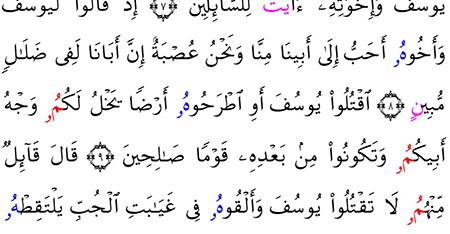 يُوسُفَ وَإِخْوَتِهِۦٓ ءَايَٰتٌ لِّلسَّآئِلِينَ ۝٧ إِذْ قَالُوا۟ لَيُوسُفُ
وَأَخُوهُۥ أَحَبُّ إِلَىٰٓ أَبِينَا مِنَّا وَنَحْنُ عُصْبَةٌ إِنَّ أَبَانَا لَفِى ضَلَٰلٍ
مُّبِينٍ ۝٨ ٱقْتُلُوا۟ يُوسُفَ أَوِ ٱطْرَحُوهُۥ أَرْضًا يَخْلُ لَكُمُۥ وَجْهُ
أَبِيكُمُۥ وَتَكُونُوا۟ مِنۢ بَعْدِهِۦ قَوْمًا صَٰلِحِينَ ۝٩ قَالَ قَآئِلٌ
مِّنْهُمُۥ لَا تَقْتُلُوا۟ يُوسُفَ وَأَلْقُوهُۥ فِى غَيَٰبَتِ ٱلْجُبِّ يَلْتَقِطْهُۥ